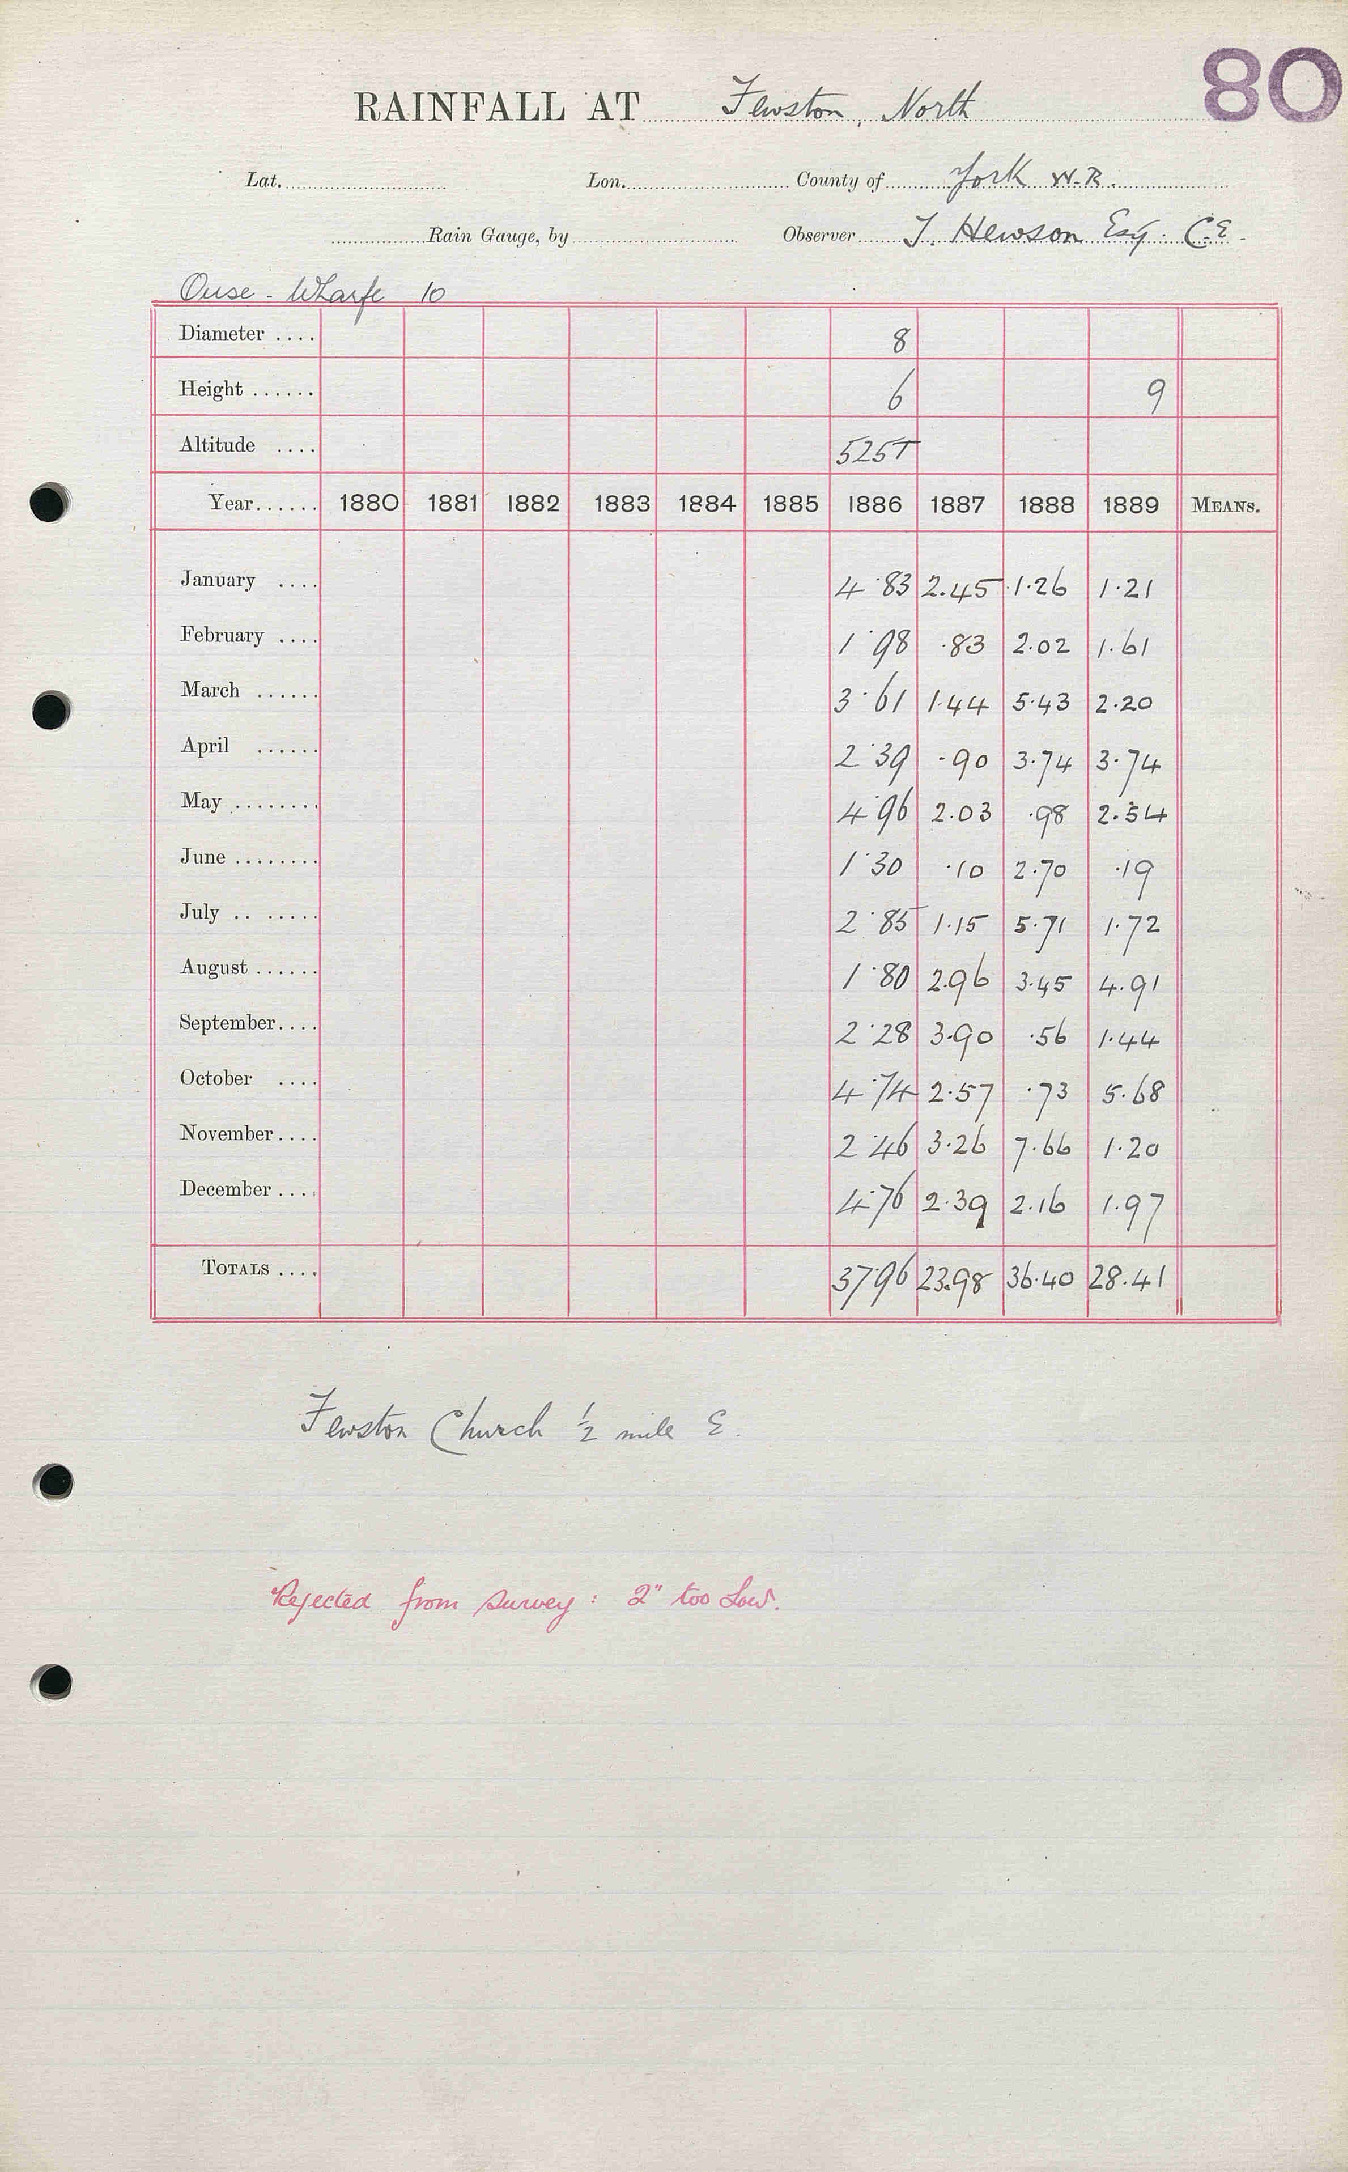 80
RAINFALL AT Fewston, North
Lat. Lon. County of York W.R.
Rain Gauge, by Observer T. Hewson Esq. C.E.
Ouse - Wharfe 10
Diameter .... 8
Height ...... 6 9
Altitude .... 525T
Year...... 1880 1881 1882 1883 1884 1885 1886 1887 1888 1889 MEANS.
January .... 4.83 2.45 1.26 1.21
February .... 1.98 .83 2.02 1.61
March ...... 3.61 1.44 5.43 2.20
April ...... 2.39 .90 3.74 3.74
May ........ 4.96 2.03 .98 2.54
June ........ 1.30 .10 2.70 .19
July .. ..... 2.85 1.15 5.71 1.72
August ...... 1.80 2.96 3.45 4.91
September.... 2.28 3.90 .56 1.44
October .... 4.74 2.57 .73 5.68
November.... 2.46 3.26 7.66 1.20
December.... 4.76 2.39 2.16 1.97
TOTALS .... 37.96 23.98 36.40 28.41
Fewston Church ½ mile E.
Rejected from survey: 2" too low.